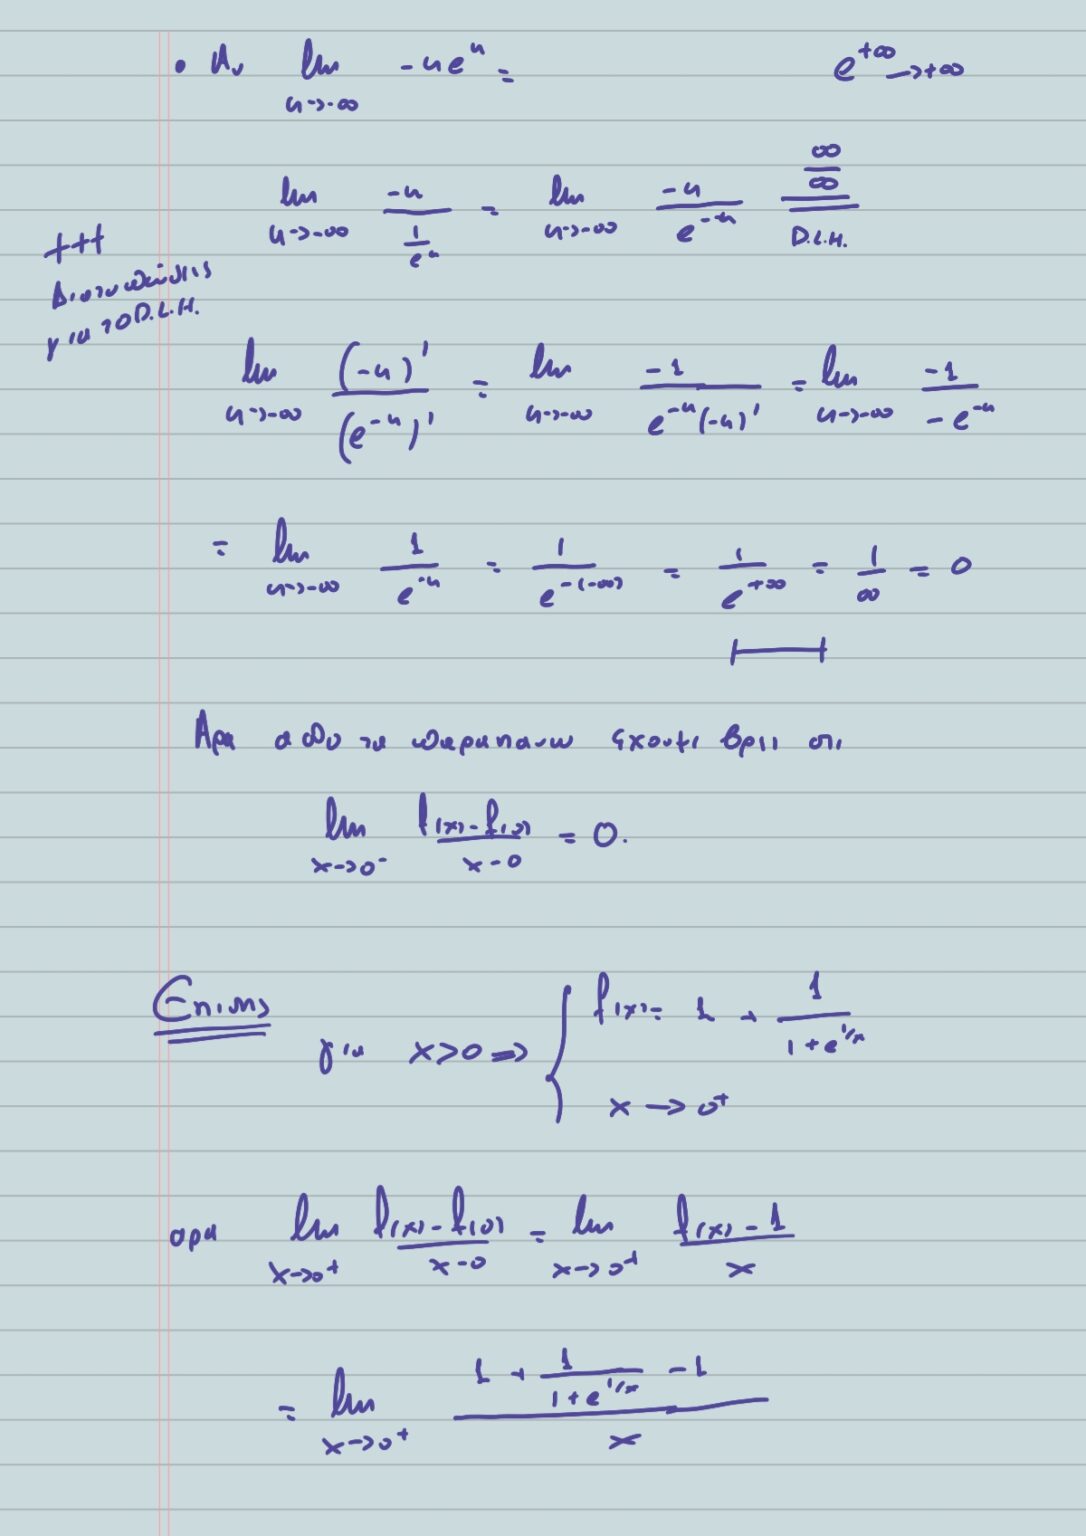 • Αν lim u→-∞ -ue^u = e^{+∞} → +∞
lim u→-∞ -u / (1/e^u) = lim u→-∞ -u / e^{-u} = (∞/∞, D.L.H.)
+++
για το D.L.H.
lim u→-∞ (-u)' / (e^{-u})' = lim u→-∞ -1 / (e^{-u}(-u)') = lim u→-∞ -1 / -e^{-u}
= lim u→-∞ 1 / e^{-u} = 1 / e^{-(-∞)} = 1 / e^{+∞} = 1/∞ = 0
Αρα απο τα παραπανω εχουμε βρει οτι
lim x→0^- (f(x) - f(0)) / (x - 0) = 0.
Επισης
για x > 0 ⇒ { f(x) = 1 + 1 / (1 + e^{1/x})
x → 0^+
αρα lim x→0^+ (f(x) - f(0)) / (x - 0) = lim x→0^+ (f(x) - 1) / x
= lim x→0^+ (1 + 1 / (1 + e^{1/x}) - 1) / x